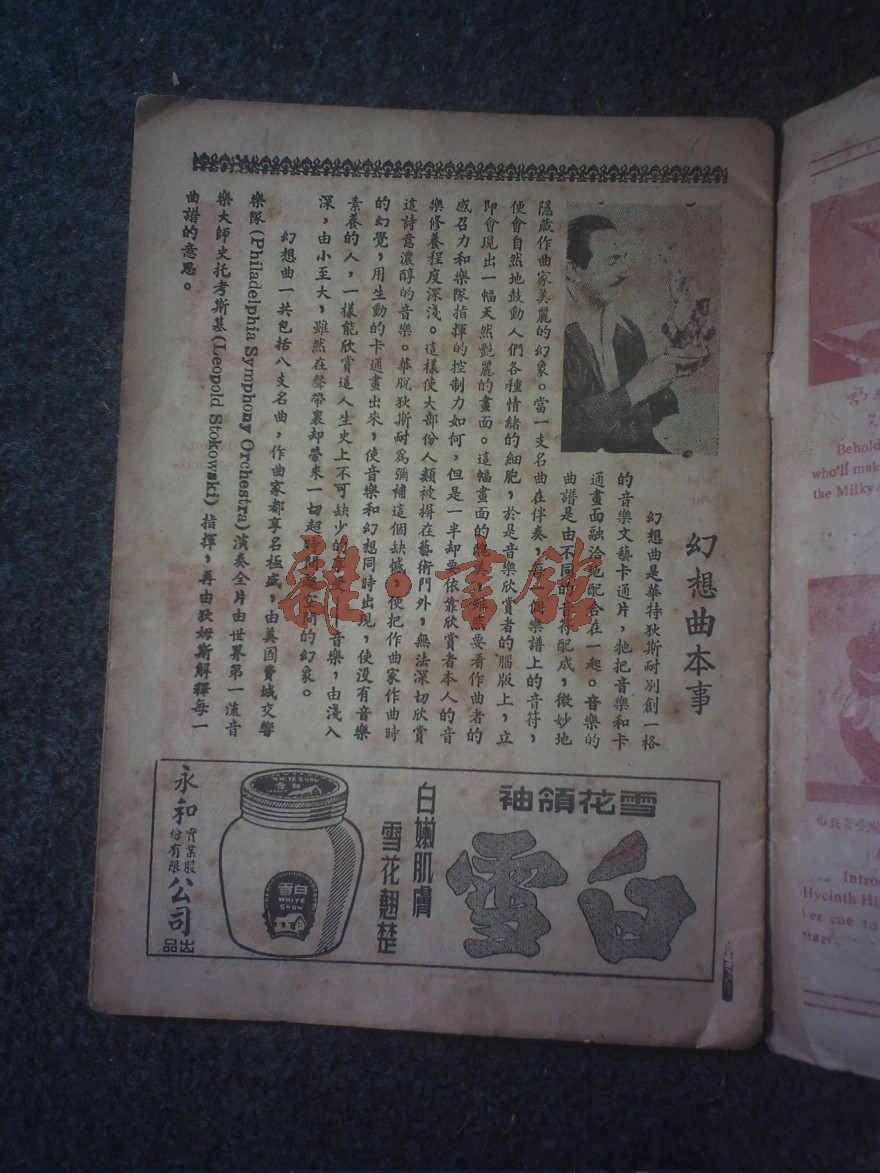 幻想曲本事
幻想曲是華特狄斯耐別創一格
的音樂文藝卡通片，牠把音樂和卡
通畫面融洽地配合在一起。音樂的
曲譜是由不同的音符配成，微妙地
隱藏作曲家美麗的幻象。當一支名曲在伴奏，每一個樂譜上的音符，
便會自然地鼓動人們各種情緒的細胞，於是音樂欣賞者的腦版上，立
即會現出一幅天然艷麗的畫面。這幅畫面的醜美，雖然要看作曲者的
感召力和樂隊指揮的控制力如何，但是一半却要依靠欣賞者本人的音
樂修養程度深淺。這樣使大部份人類被摒在藝術門外，無法深切欣賞
這詩意濃醇的音樂。華脫狄斯耐爲彌補這個缺憾，便把作曲家作曲時
的幻覺，用生動的卡通畫出來，使音樂和幻想同時出現，使没有音樂
素養的人，一樣能欣賞這人生史上不可缺少的音樂，由淺入
深，由小至大，雖然在聲帶裏却帶來一切超時間空間的幻象。
幻想曲一共包括八支名曲，作曲家都享名極盛，由美國費城交響
樂隊(Philadelphia Symphony Orchestra)演奏全片由世界第一流音
樂大師史托考斯基(Leopold Stokowski)指揮，再由狄姆斯解釋每一
曲譜的意思。
雜·書館
雪花領袖
白雪
白嫩肌膚
雪花翹楚
WHITE SNOW
白雪
白雪
WHITE
SNOW
永和實業股份有限公司出品
Behold
who'll mak
the Milky
Intro
Hycinth Hi
er cue to
stage.